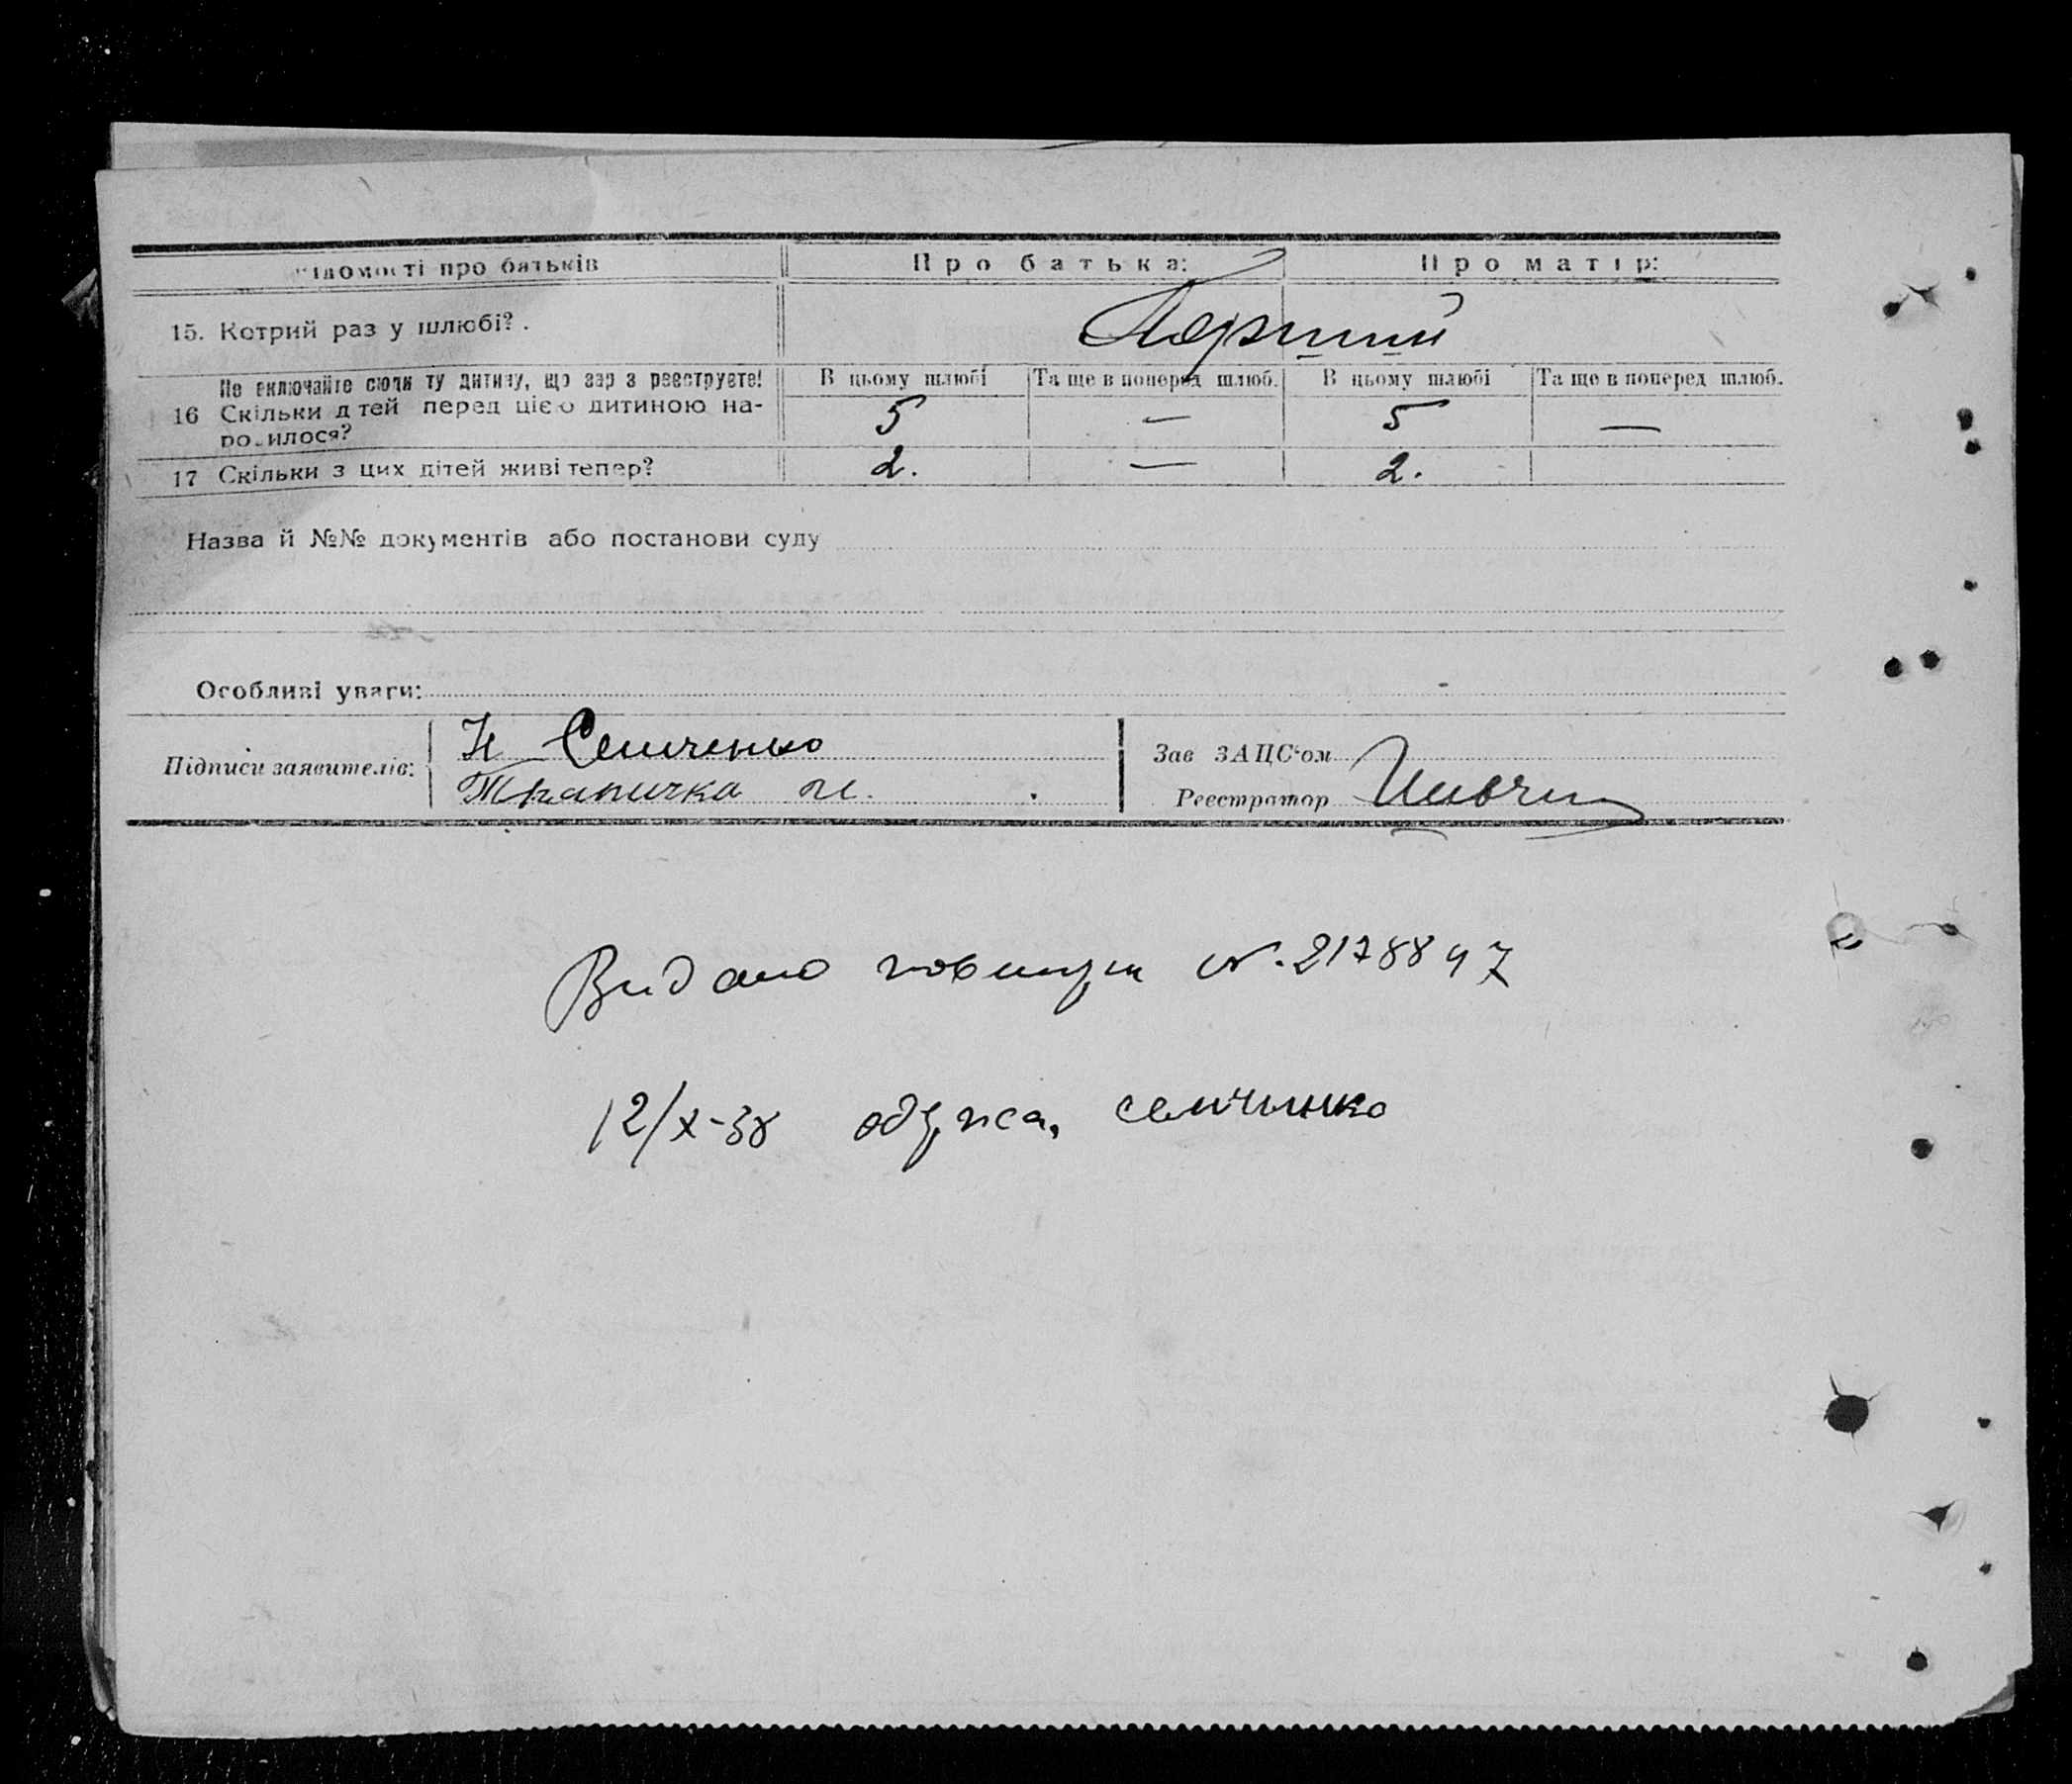 ідомості про батьків Про батька: Про матір:
15. Котрий раз у шлюбі? . Перший
Не включайте сюди ту дитину, що зар з реєструєте! В цьому шлюбі Та ще в поперед шлюб. В цьому шлюбі Та ще в поперед шлюб.
16 Скільки д тей перед цією дитиною на- 5 — 5 —
ро илося?
17 Скільки з цих дітей живі тепер? 2. — 2.
Назва й №№ документів або постанови суду
Особливі уваги:
Підписи заявителів: Н Семченко
Зав ЗАЦС'ом
Реєстратор
Видано N. 2178897
12/X-38 Семченко